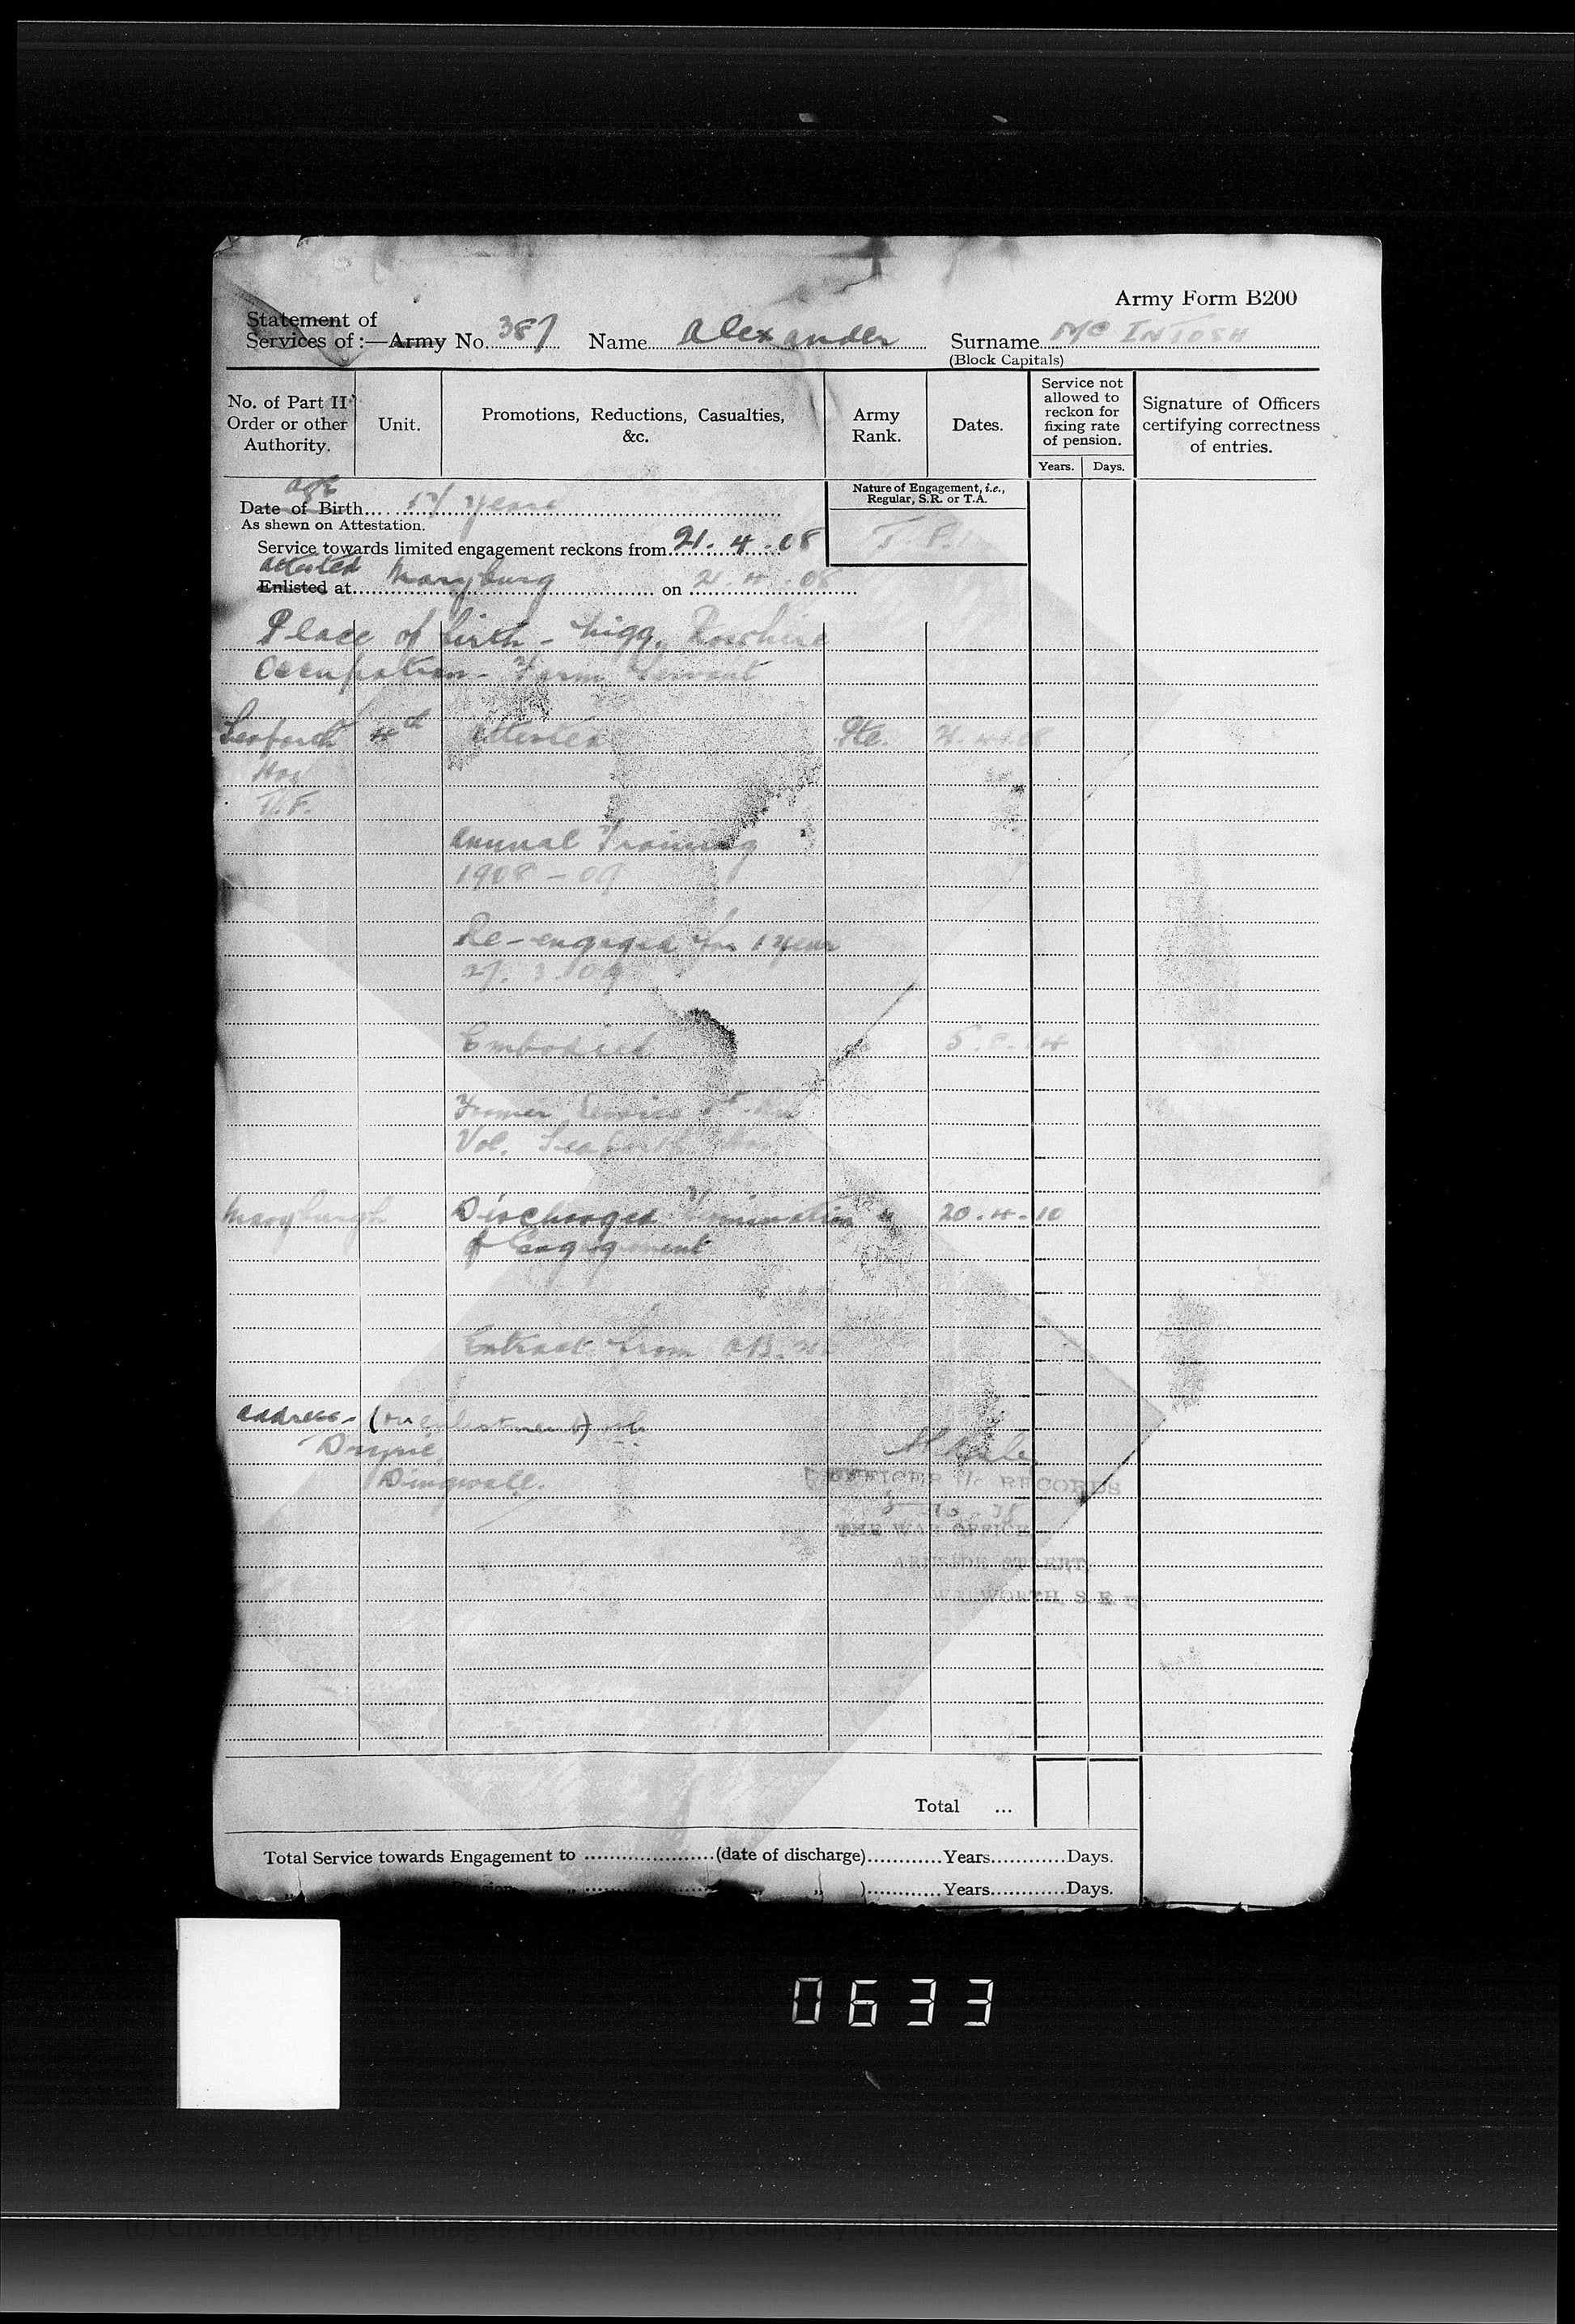 Army Form B200
Statement of
Services of :—Army No. 387 Name Alexander Surname McINTOSH
(Block Capitals)
No. of Part II Order or other Authority.
Unit.
Promotions, Reductions, Casualties, &c.
Army Rank.
Dates.
Service not allowed to reckon for fixing rate of pension.
Years. Days.
Signature of Officers certifying correctness of entries.
Age
Date of Birth years
As shewn on Attestation.
Nature of Engagement, i.e., Regular, S.R. or T.A.
Service towards limited engagement reckons from 21.4.08
Attested
Enlisted at Maryburg on 21.4.08
Place of birth - Nigg, Rosshire
Occupation - Farm Servant
Seaforth 4th Attested Pte. 21.4.08
T.F.
Annual Training
1908 - 09
Re-engaged for 1 year
27.3.09
Embodied
Former Service
Vol. Seaforth
Maryburgh Discharged Termination 20.4.10
of Engagement
Extract from
Address - (on enlistment)
Dingwall.
OFFICER i/c RECORDS
THE WAR OFFICE
STREET,
WALWORTH, S.E.
Total ...
Total Service towards Engagement to (date of discharge) Years Days.
Pension „ „ ) Years Days.
0633
(c) Crown Copyright Images reproduced by courtesy of The National Archives, London, England